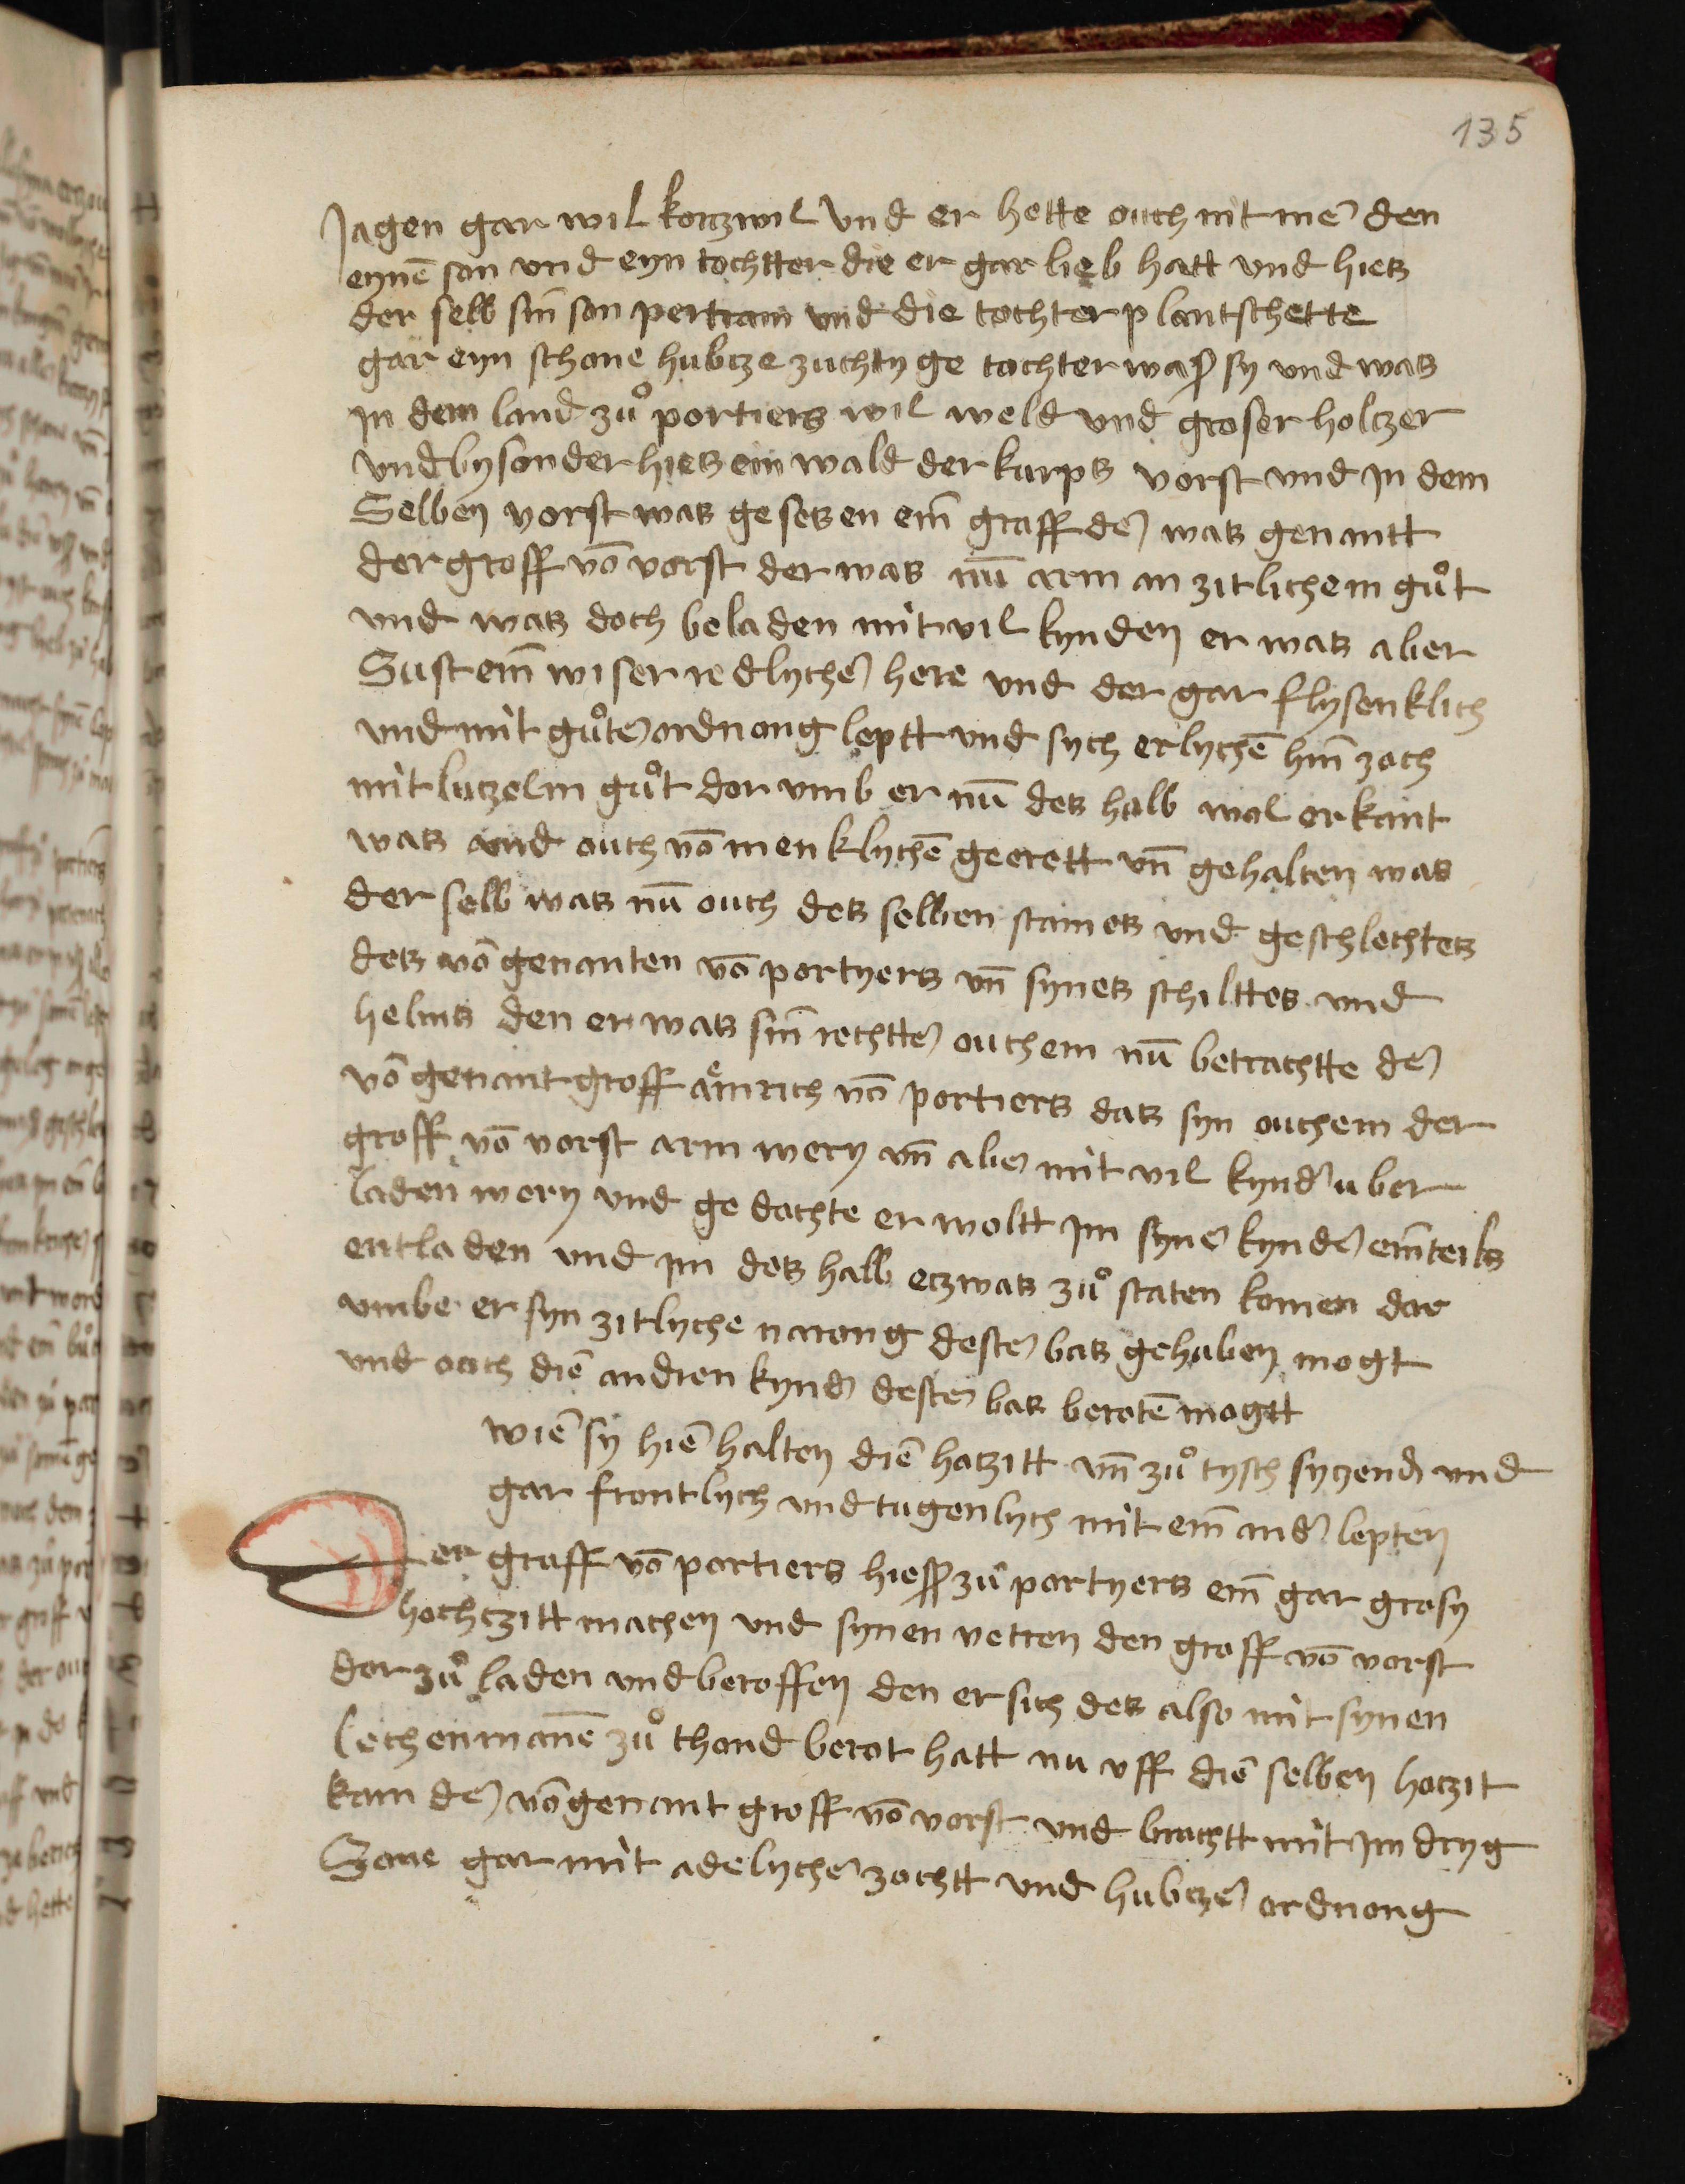 135
Jagen gar wil kortzwil vnd er hette ouch nit me͛ den
eynē son vnd eyn tochtter die er gar lieb hatt vnd hies
der selb sin̄ son pertram vnd die tochter plantschette
gar eyn schone hubtze zuchtyge tochter waß sy vnd was
jn dem land zů portiers wil weld vnd groser holtzer
vnd bysonder hies ein wald der kurps vorst vnd jn dem
Selben vorst was gesesen ein̄ graff de͛ was genantt
der groff vō vorst der was nū arm an zitlichem gůt
vnd was doch beladen mit vil kynden er was aber
Sust ein̄ wiser redlyche͛ here vnd der gar flysenklich
vnd mit gůte͛ ordnong leptt vnd sych erlychē hin̄ zoch
mit lutzelm gůt dor vmb er nū des halb wol erkant
was vnd ouch vō menklychē geerett vn̄ gehalten was
der selb was nū ouch des selben stames vnd geschlechtes
des vō genanten vō portyers vn̄ synes schilttes vnd
helms den er was sin̄ rechtte͛ ouchem nū betrachtte de͛
vō genant groff ämrich vō portiers das syn ouchem der
groff vō vorst arm wery vn̄ abe͛ mit vil kynd͛ uber
laden wery vnd gedochte er woltt jm syne͛ kynde͛ ein̄teils
entladen vnd jm des halb etzwas zů staten komen dar
vmbe er syn zitlyche narong deste͛ bas gehaben mogt
vnd ouch diē andren kynd͛ deste͛ bas berotē mogtt
wiē sy hiē halten diē hotzitt vn̄ zů tysch sytzend͛ vnd
gar frontlych vnd tugenlych mit ein̄ and͛ lepten
Der graff vō portiers hieß zů portyers ein̄ gar grosy
hochtzitt machen vnd synen vetren den groff vō vorst
dor zů laden vnd beroffen den er sich des also mit synen
lechenmanē zů thond berot hatt nu vff diē selben hotzit
kam de͛ vō genant groff vō vorst vnd brachtt mit jm dryg
Sone gar mit adelyche͛ zochtt vnd hubtze͛ ordnong